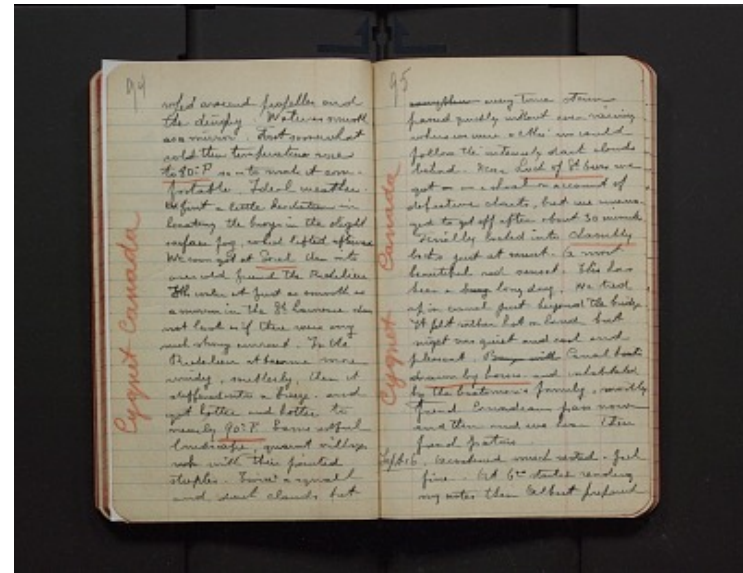 94
Cygnet Canada
around propeller and
the dinghy. Water as smooth
as a mirror. First somewhat
cold then temperature rose
to 80° F so as to make it com-
fortable. Ideal weather.
At first a little hesitation in
locating the buoys in the slight
surface fog, which lifted
We soon got at Sorel then into
our old friend the Richelieu
The water at first as smooth as
a mirror in the St Lawrence does
not look as if there were any
such strong current. In the
Richelieu it became more
windy, suddenly, then it
a breeze. and
got hotter and hotter to
nearly 90° F. Same
landscape, quaint villages
with their pointed
steeples. a squall
and dark clouds but
95
Cygnet Canada
every time
passed quickly without even raining
where we were altho we could
follow the intensely dark clouds
behind. Near Lock of St Ours we
got on a shoal on account of
defective charts, but we mana-
ged to get off after about 30 minutes
Finally locked into Chambly
locks just at sunset. (a most
beautiful red sunset. This has
been a long day. We tied
up in canal just beyond the bridge
It felt rather hot on land but
night was quiet and cool and
pleasant. Canal boats
drawn by horses and inhabited
by the boatman's family, mostly
french Canadians pass now
and then and we hear their
french patois
Sept. 16. Awakened much rested - feel
fine. At 6 started reading
my notes then Albert prepared